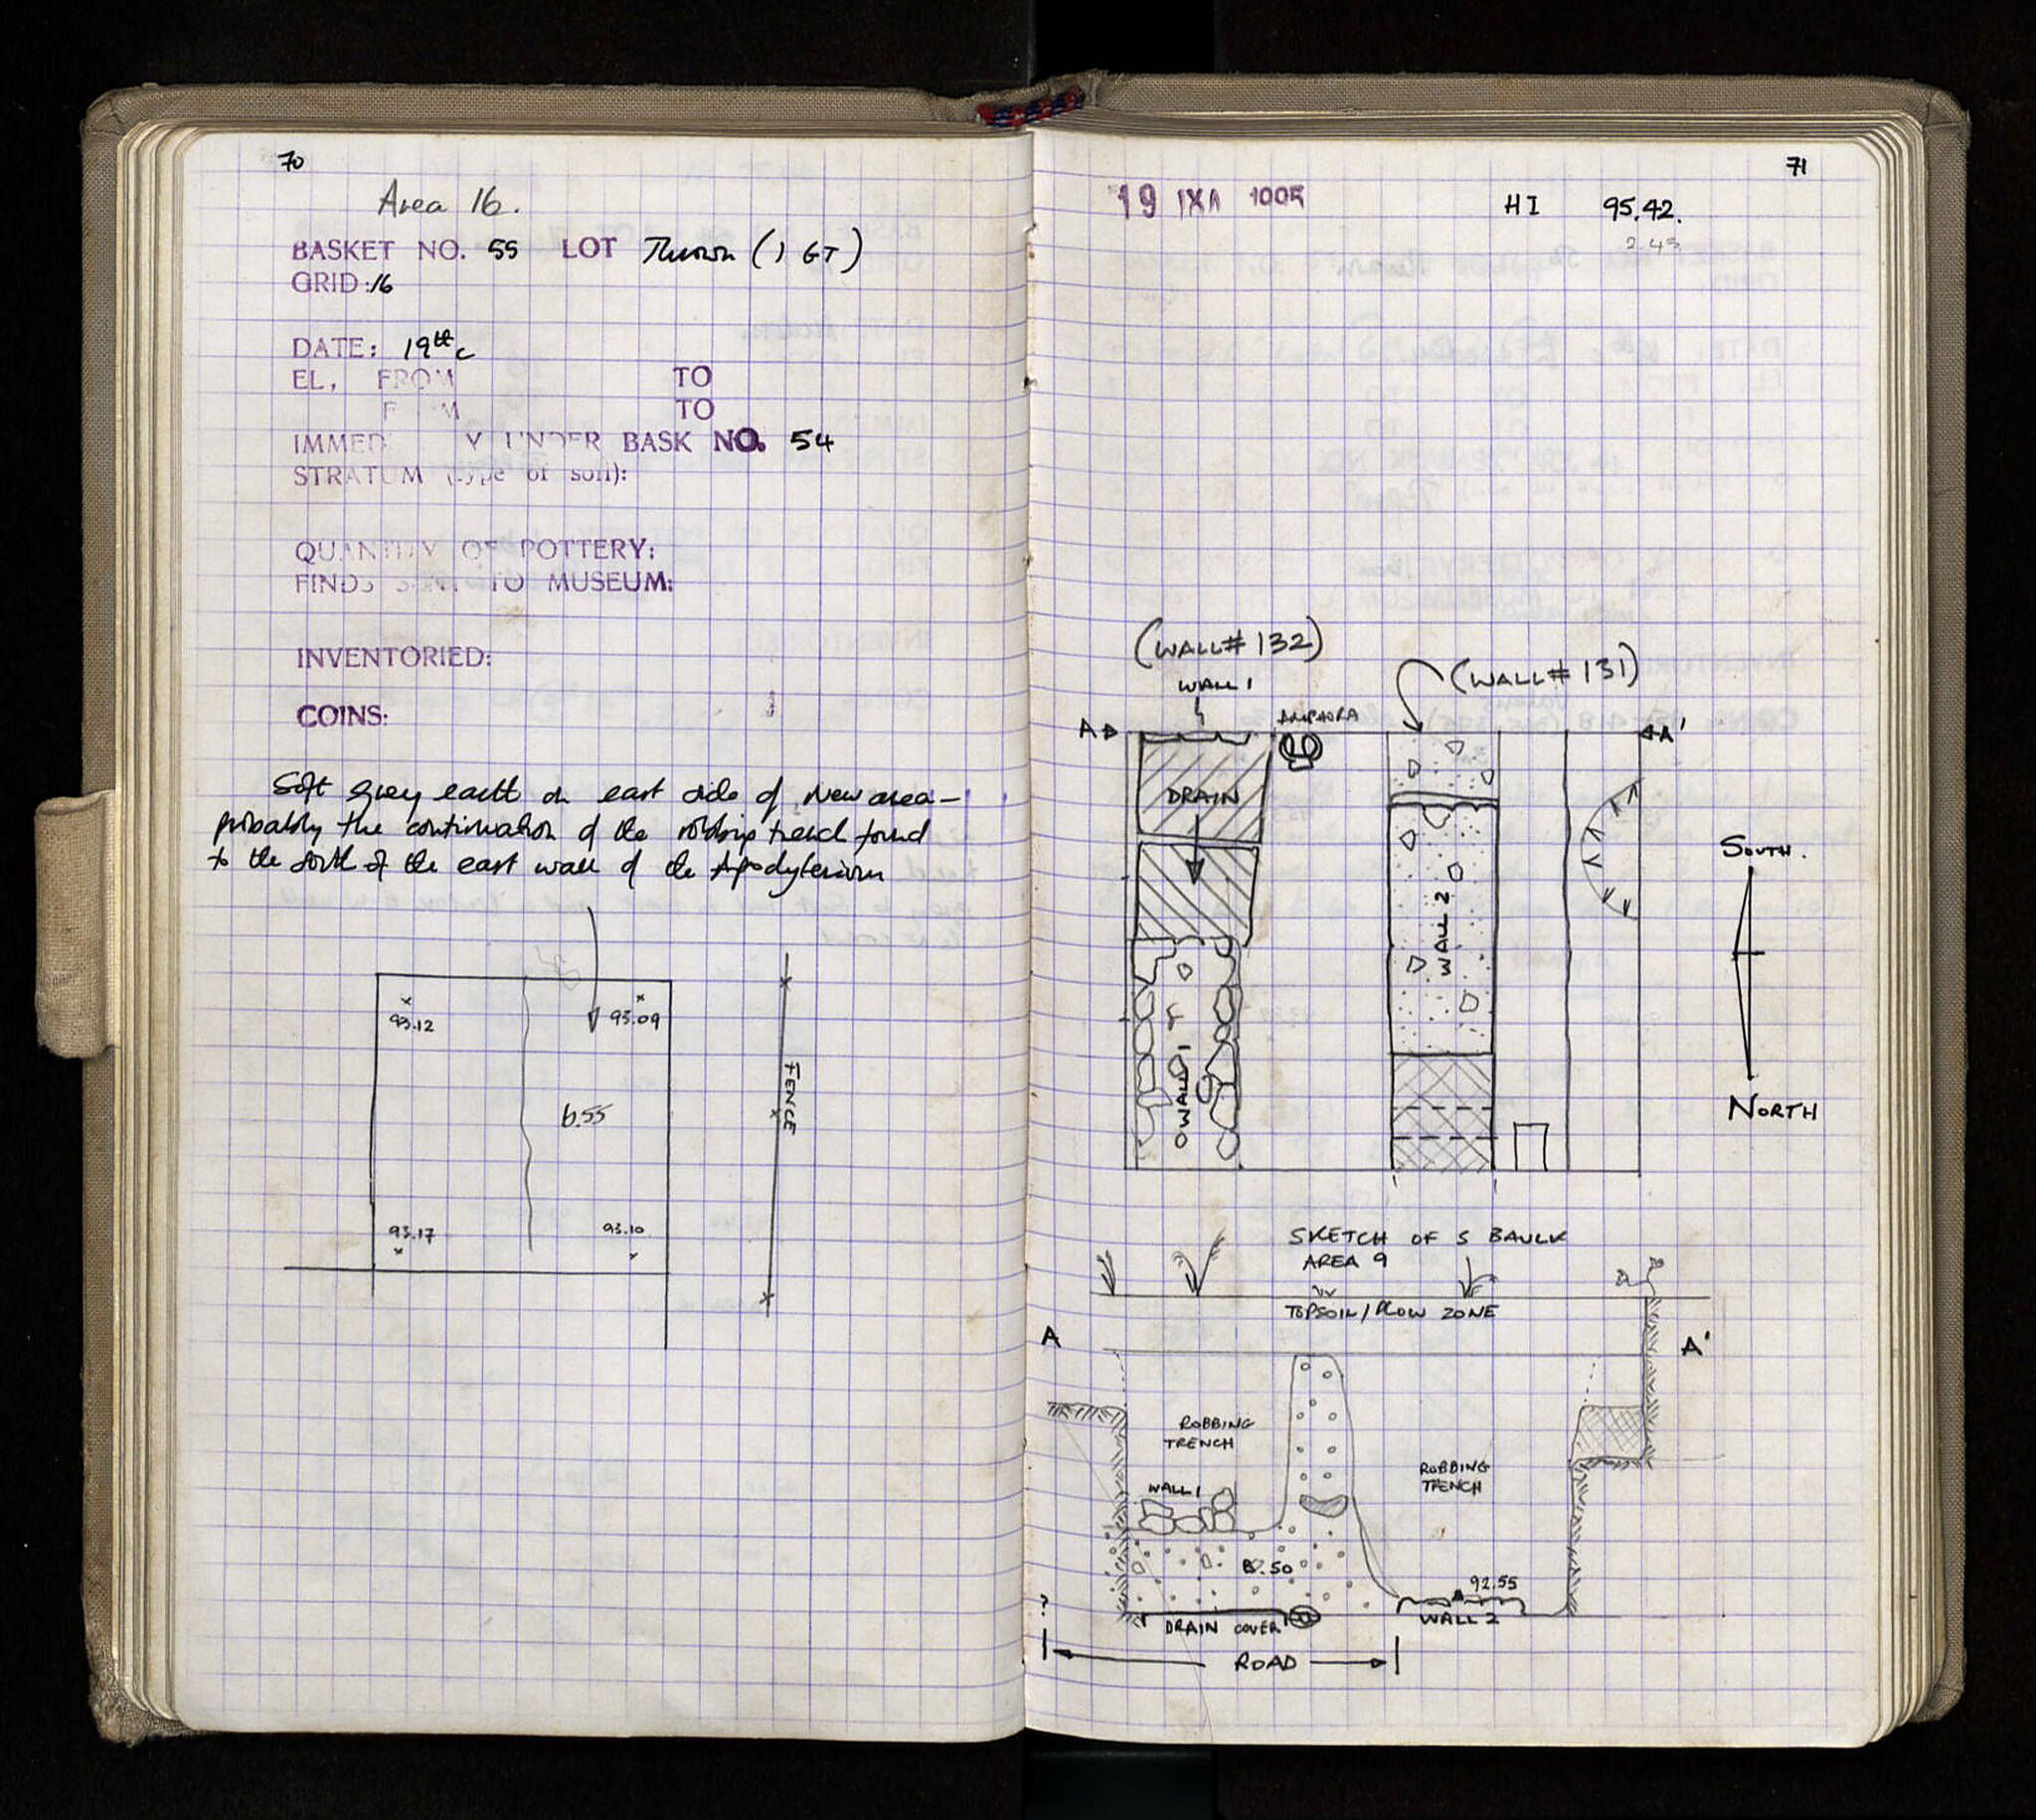 70
Area 16.
BASKET NO. 55 LOT Thrown (1 GT)
GRID: 16
DATE: 19th c
EL, FROM TO
TO
UNDER BASK NO. 54
STRATUM (type of soil):
QUANTITY OF POTTERY:
FINDS SENT TO MUSEUM:
INVENTORIED:
COINS:
Soft grey earth on east side of New area –
probably the continuation of the robbing trench found
to the south of the east wall of the Apodyterium
93.12
93.09
b.55
FENCE
93.17
93.10
71
19 ΙΧΛ 1005
HI 95.42.
2.43
(WALL# 132)
WALL 1
AMPHORA
(WALL# 131)
A
A'
DRAIN
WALL 2
WALL 1
SOUTH.
NORTH
SKETCH OF S BAULK
AREA 9
TOPSOIL / PLOW ZONE
A
A'
ROBBING
TRENCH
ROBBING
TRENCH
WALL 1
B.50
92.55
?
DRAIN COVER
WALL 2
ROAD